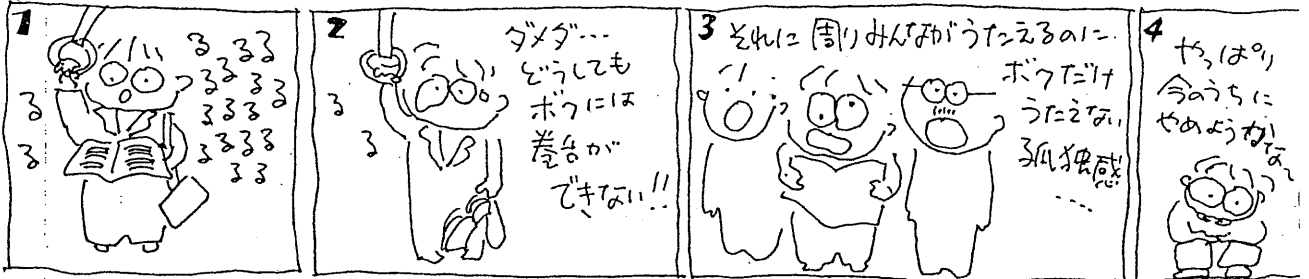 1
るるる
るるるる
るるる
るるるる
るる
る
る
2
ダメダ…
どうしても
ボクには
巻舌が
できない!!
る
る
3
それに周りみんながうたえるのに…
ボクだけ
うたえない
孤独感
....
4
やっぱり
今のうちに
やめようかなぁ〜